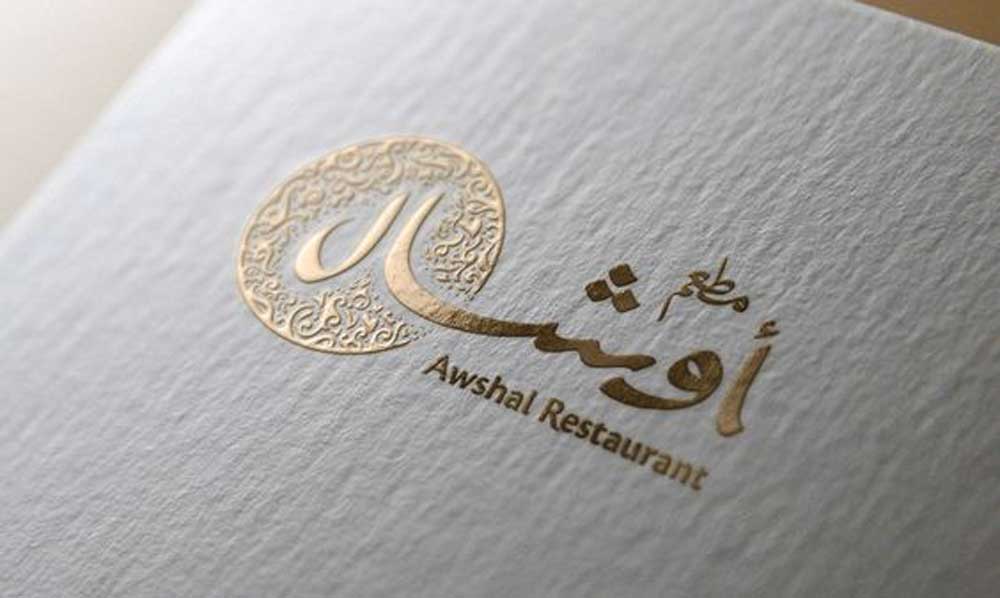 مطعم
أوشال
Awshal Restaurant